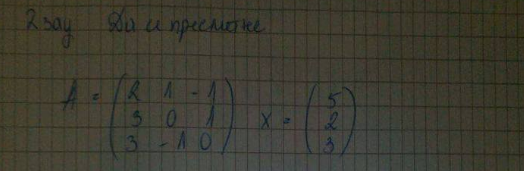 2 зад Да се пресметне
A = (2 1 -1
3 0 1
3 -1 0) x = (5
2
3)